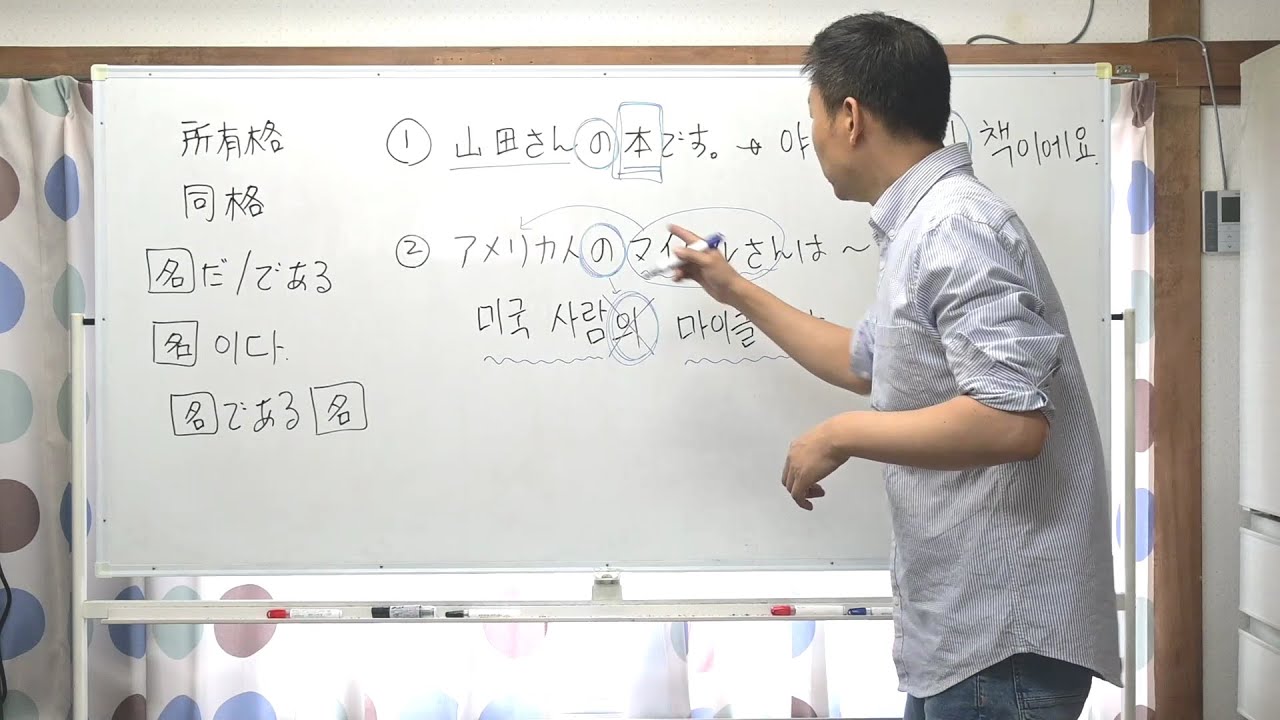 所有格
同格
名だ/である
名 이다.
名である名
① 山田さんの本です。→ 야 책이에요.
② アメリカ人のマイ ルさんは～
미국 사람의 마이클